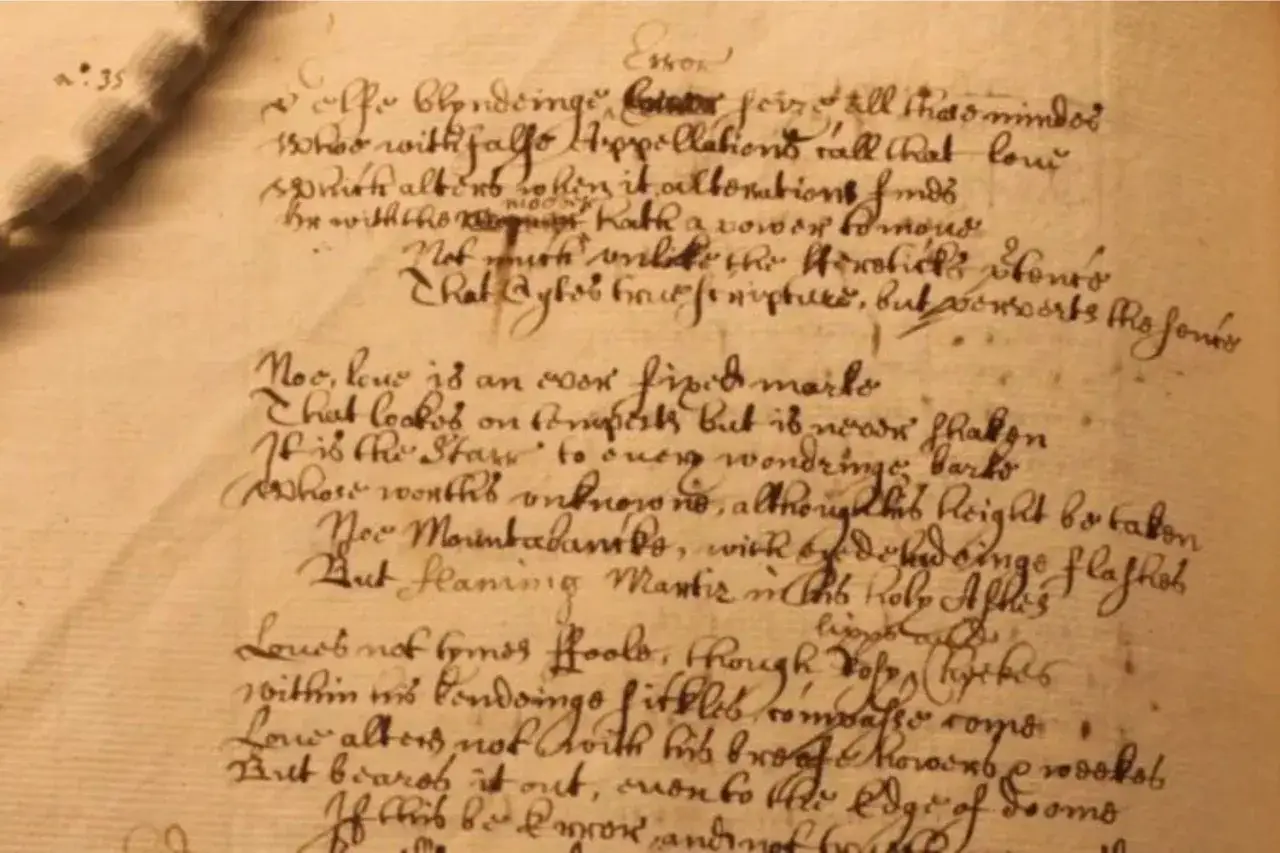 Error
n°. 35
Selfe blyndeinge seize all those mindes
Who with false Appellations call that loue
Which alters when it alterations finds
moover
Or with the hath a power to moue
Not much vnlike the Hereticks ptence
That Cytes true scripture, but perverts the sence
Noe, loue is an ever fixed marke
That lookes on tempests but is never shaken
It is the Starr to euery wondringe barke
Whose worths vnknowne, although his height be taken
Noe Mountabancke, with eyedeludeinge flashes
But flaming Martir in his holy Ashes
lipps and
Loues not tymes ffoole, though Rosy Cheekes
within his bendeinge sickles compasse come
Loue alters not with his breefe howers & weekes
But beares it out, euen to the Edge of doome
If this be Error and not